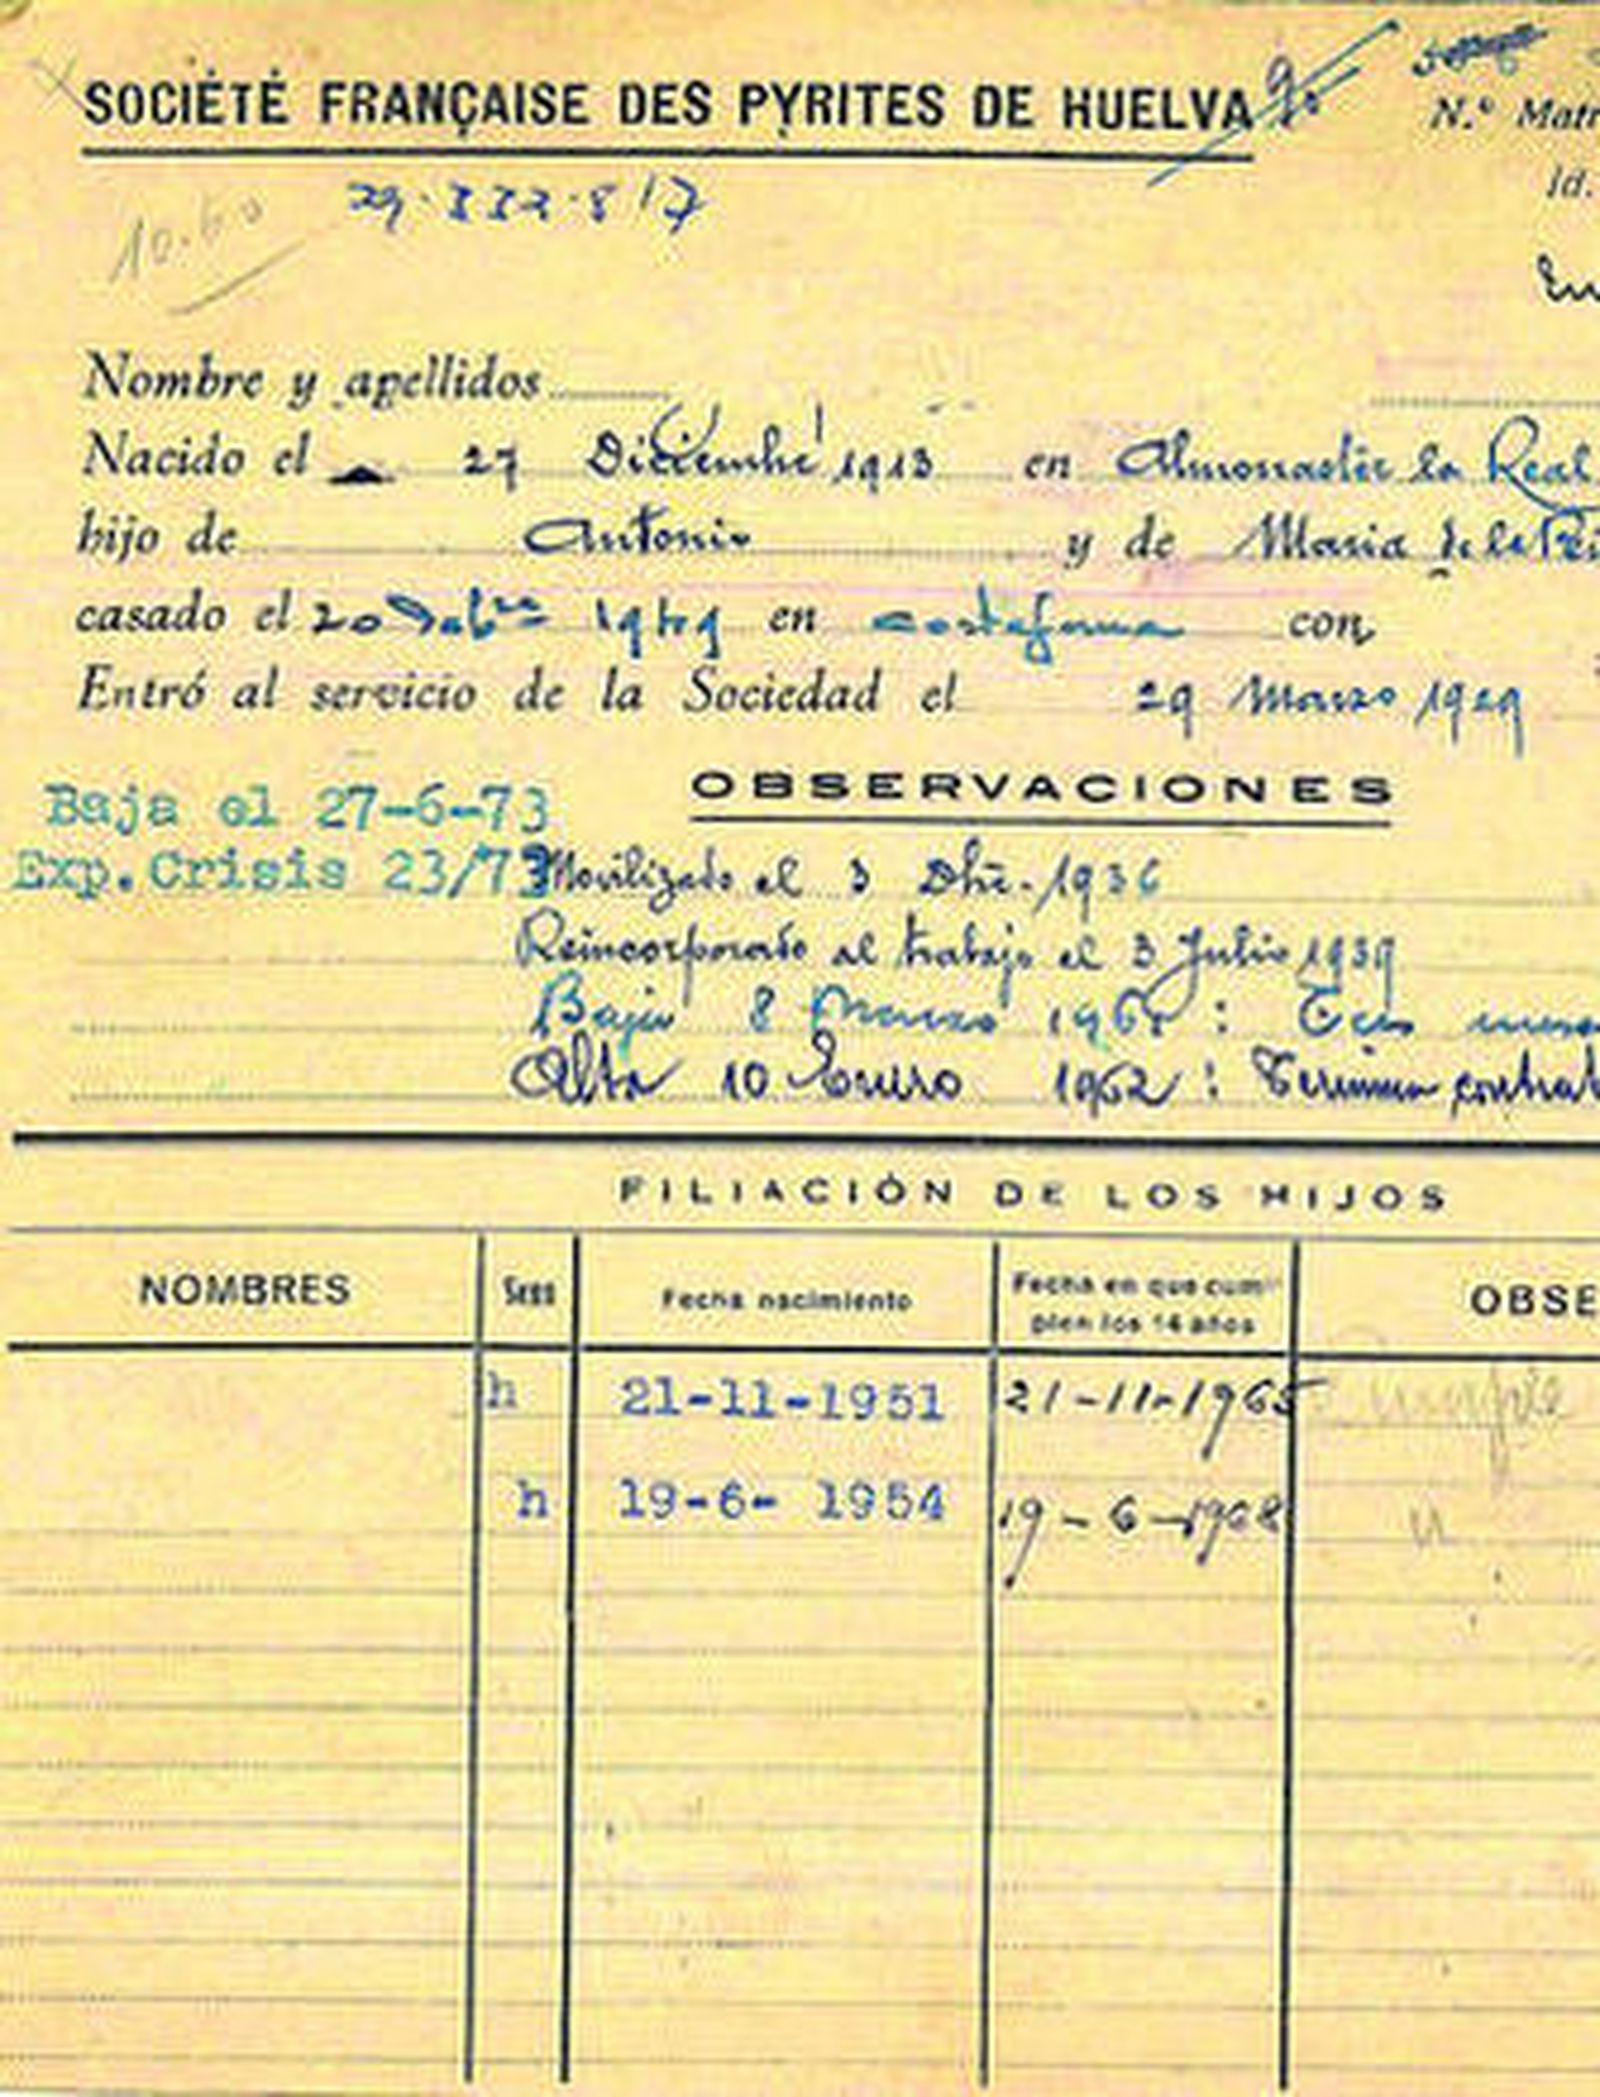 SOCIÉTÉ FRANÇAISE DES PYRITES DE HUELVA
N.º Matr
Id.
29.332.817
10.60
En
Nombre y apellidos
Nacido el 27 Diciembre 1913 en Almonaster la Real
hijo de Antonio y de Maria de la
casado el 20 1949 en con
Entró al servicio de la Sociedad el 29 Marzo 1929
OBSERVACIONES
Baja el 27-6-73
Exp.Crisis 23/73 Movilizado el 3 Dbre. 1936
Reincorporado al trabajo el 3 Julio 1939
Baja 8 Marzo :
Alta 10 Enero 1962 : Termina contrat
FILIACIÓN DE LOS HIJOS
NOMBRES Sexo Fecha nacimiento Fecha en que cumplen los 14 años OBSE
h 21-11-1951 21-11-1965 Cumple
h 19-6- 1954 19-6-1968 "